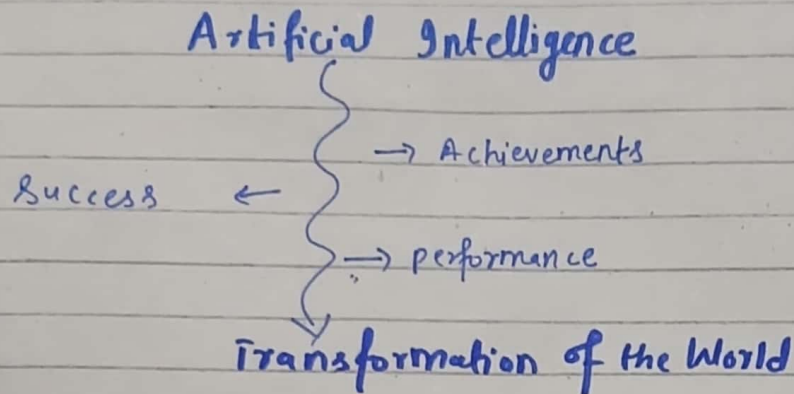 Artificial Intelligence
→ Achievements
Success ←
→ performance
Transformation of the World